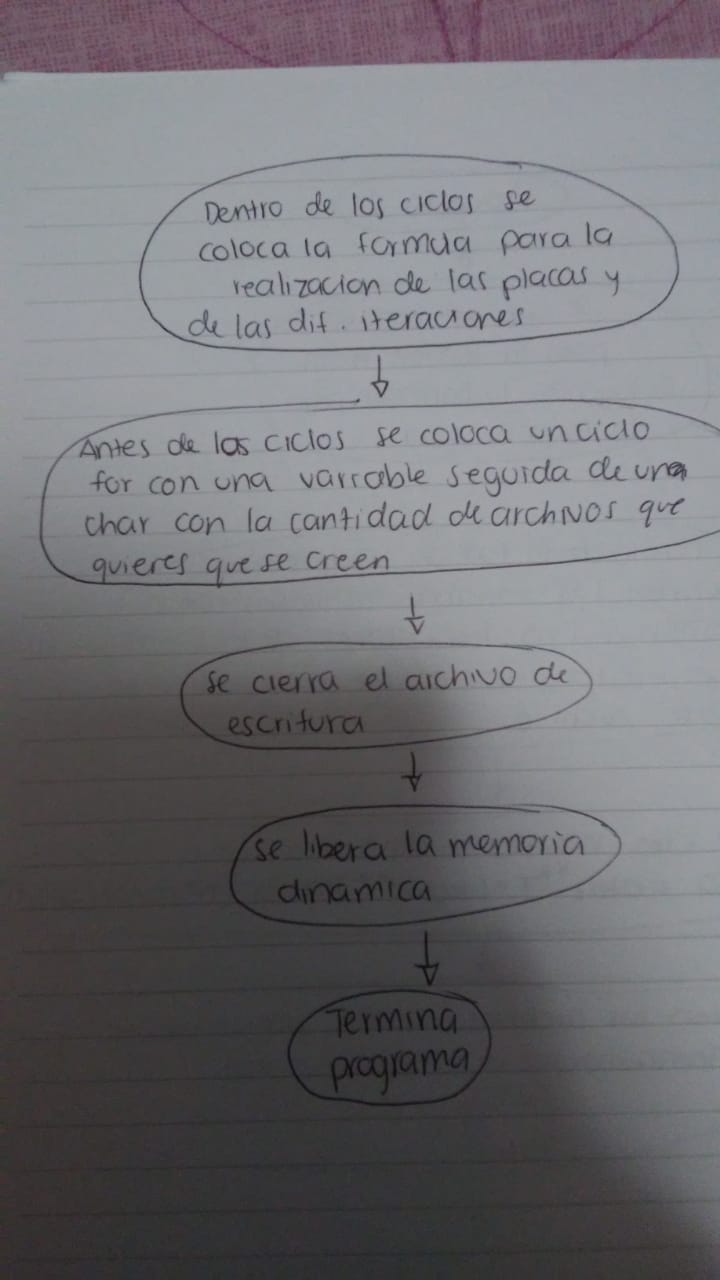 Dentro de los ciclos se
coloca la formula para la
realizacion de las placas y
de las dif. iteraciones
Antes de los ciclos se coloca un ciclo
for con una variable seguida de una
char con la cantidad de archivos que
quieres que se creen
se cierra el archivo de
escritura
se libera la memoria
dinamica
Termina
programa